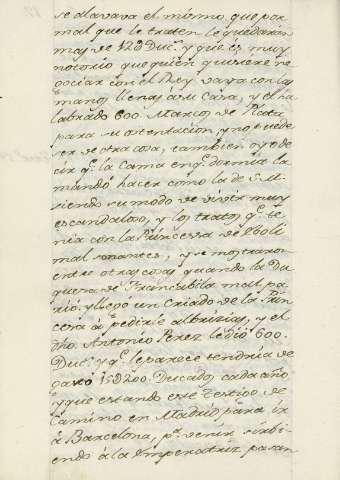 se alavava el mismo que por
mal que le traten le quedarán
mas de 12@ Duc.s y que es muy
notorio que quien quisiere ne
gociar con el Rey vaya con las
manos llenas a su casa, y el ha
labrado 600 Marcos de Plata
para su ostentacion, y no puede
ser de otra cosa, tambien oyo de
cir q.e la Cama en q.e dormia la
mandó hacer como la de S. M.
siendo su modo de vivir muy
escandaloso, y los tratos q.e te
nia con la Princesa de Eboli
mal sonantes, y se mostraron
entre otras cosas quando la Du
quesa de Francavila mal pa
rió, y llegó un criado de la Prin
cesa á pedirle albrizias, y el
dho. Antonio Perez le dió 600.
Duc.s y q.e le parece tendria de
gasto 15@200. Ducados cada año
y que estando este Testigo de
Camino en Madrid para ir
á Barcelona, p.a venir sirbi
endo á la Emperatriz pasan